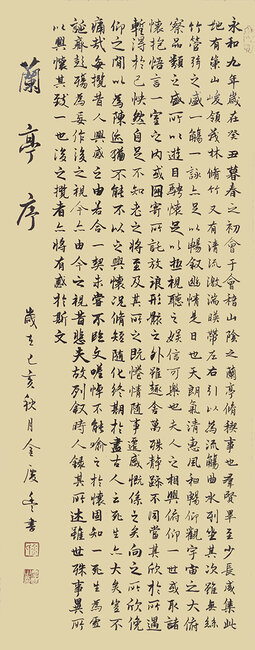 永和九年歲在癸丑暮春之初會于會稽山陰之蘭亭脩稧事也群賢畢至少長咸集此
地有崇山峻領茂林脩竹又有清流激湍映帶左右引以為流觴曲水列坐其次雖無絲
竹管弦之盛一觴一詠亦足以暢叙幽情是日也天朗氣清惠風和暢仰觀宇宙之大俯
察品類之盛所以遊目騁懷足以極視聽之娛信可樂也夫人之相與俯仰一世或取諸
懷抱悟言一室之内或因寄所託放浪形骸之外雖趣舍萬殊靜躁不同當其欣於所遇
暫得於己怏然自足不知老之將至及其所之既惓情隨事遷感慨係之矣向之所欣俛
仰之間以為陳迹猶不能不以之興懷況脩短隨化終期於盡古人云死生亦大矣豈不
痛哉每攬昔人興感之由若合一契未嘗不臨文嗟悼不能喻之於懷固知一死生為虛
誕齊彭殤為妄作後之視今亦由今之視昔悲夫故列叙時人錄其所述雖世殊事異所
以興懷其致一也後之攬者亦將有感於斯文
蘭亭序
歲在己亥秋月金書